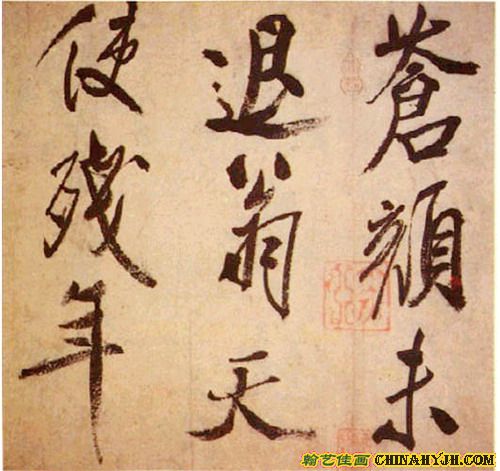 蒼顏未
退翁天
使殘年
翰艺佳画 CHINAHYJH.COM